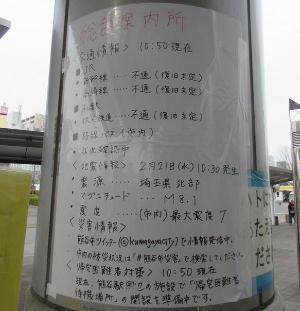 総合案内所
<交通情報> 10:50現在
■JR
・新幹線……不通（復旧未定）
・高崎線……不通（復旧未定）
■私鉄
・秩父鉄道……不通（復旧未定）
■路線バス（市内）
状況確認中
<地震情報> 2月21日(水)15:30発生
■震源……埼玉県北部
■マグニチュード……M8.1
■震度……(市内)最大震度7
<災害情報>
熊谷市ツイッター(@kumagayacity)で情報発信中。
市内の被災状況は「#熊谷市災害」で検索してください。
<帰宅困難者対策> 10:50現在
現在、熊谷駅周辺の施設で「帰宅困難者
待機場所」の開設を準備中です。
ハト
た
ださ